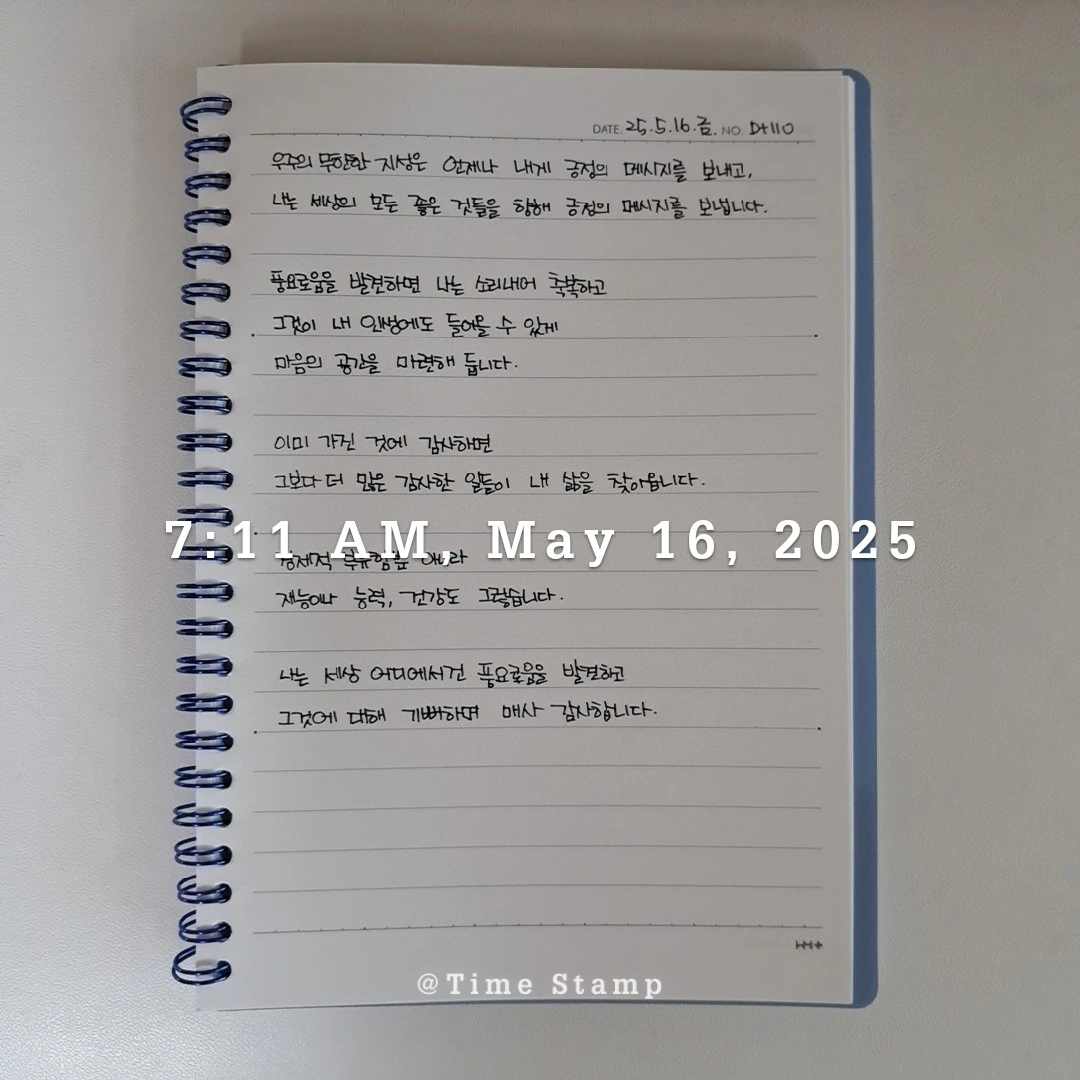 DATE. 25.5.16.금. NO. D+110
우주의 무한한 지성은 언제나 내게 긍정의 메시지를 보내고,
나는 세상의 모든 좋은 것들을 향해 긍정의 메시지를 보냅니다.
풍요로움을 발견하면 나는 소리내어 축복하고
그것이 내 인생에도 들어올 수 있게
마음의 공간을 마련해 둡니다.
이미 가진 것에 감사하면
그보다 더 많은 감사한 일들이 내 삶을 찾아옵니다.
7:11 AM, May 16, 2025
경제적 아니라
재능이나 능력, 건강도 그렇습니다.
나는 세상 어디에서건 풍요로움을 발견하고
그것에 대해 기뻐하며 매사 감사합니다.
@Time Stamp